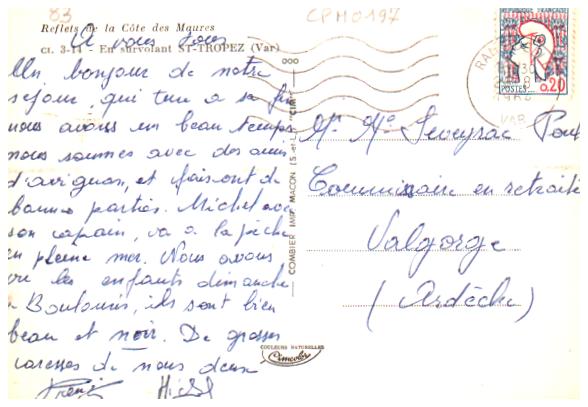 83
CPM0197
Reflets de la Côte des Maures
A vous tous
ct. 3-14 - En survolant ST-TROPEZ (Var)
Un bonjour de notre
séjour, qui tire a sa fin
nous avons eu beau temps
nous sommes avec des amis
d'avignon, et faisont de
bonnes parties. Michel avec
son capitain, va a la pêche
en pleine mer. Nous avons
vu les enfants dimanche
a ils sont bien
beau et noir. De grosses
caresses de nous deux
Michel
COMBIER IMP. MACON (S.-et-L.) "CIM"
COULEURS NATURELLES
Cimcolor
REPUBLIQUE FRANÇAISE
POSTES 0,20
VAR
Mr Me Seveyrac Paul
Commissaire en retraite
Valgorge
(Ardèche)